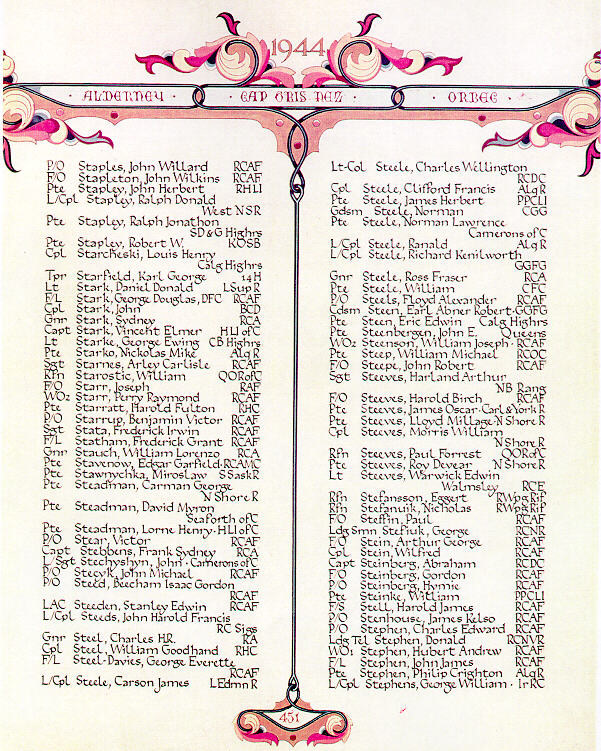 1944
ALDERNEY · CAP GRIS NEZ · ORBEC
P/O Staples, John Willard RCAF
F/O Stapleton, John Wilkins RCAF
Pte Stapley, John Herbert RHLI
L/Cpl Stapley, Ralph Donald
West NSR
Pte Stapley, Ralph Jonathon
SD&G Highrs
Pte Stapley, Robert W. KOSB
Cpl Starcheski, Louis Henry
Calg Highrs
Tpr Starfield, Karl George 14H
Lt Stark, Daniel Donald LSupR
F/L Stark, George Douglas, DFC RCAF
Cpl Stark, John BCD
Gnr Stark, Sydney RCA
Capt Stark, Vincent Elmer HLI of C
Lt Starke, George Ewing CB Highrs
Pte Starko, Nickolas Mike Alq R
Sgt Starnes, Arley Carlisle RCAF
Rfn Starostic, William QOR of C
F/O Starr, Joseph RAF
WO2 Starr, Perry Raymond RCAF
Pte Starratt, Harold Fulton RHC
P/O Starrup, Benjamin Victor RCAF
Sgt Stata, Frederick Irwin RCAF
F/L Statham, Frederick Grant RCAF
Gnr Stauch, William Lorenzo RCA
Pte Stavenow, Edgar Garfield·RCAMC
Pte Stawnychka, Miroslaw SSaskR
Pte Steadman, Carman George
N Shore R
Pte Steadman, David Myron
Seaforth of C
Pte Steadman, Lorne Henry·HLI of C
P/O Stear, Victor RCAF
Capt Stebbens, Frank Sydney RCA
L/Sgt Stechyshyn, John·Camerons of C
P/O Stecyk, John Michael RCAF
P/O Steed, Beecham Isaac Gordon
RCAF
LAC Steeden, Stanley Edwin RCAF
L/Cpl Steeds, John Harold Francis
RC Sigs
Gnr Steel, Charles H.R. RA
Cpl Steel, William Goodhand RHC
F/L Steel-Davies, George Everette
RCAF
L/Cpl Steele, Carson James LEdmn R
Lt-Col Steele, Charles Wellington
RCDC
Cpl Steele, Clifford Francis Alq R
Pte Steele, James Herbert PPCLI
Gdsm Steele, Norman CGG
Pte Steele, Norman Lawrence
Camerons of C
L/Cpl Steele, Ranald Alq R
L/Cpl Steele, Richard Kenilworth
GGFG
Gnr Steele, Ross Fraser RCA
Pte Steele, William CFC
P/O Steels, Floyd Alexander RCAF
Gdsm Steen, Earl Abner Robert·GGFG
Pte Steen, Eric Edwin Calg Highrs
Pte Steenbergen, John E. Queens
WO2 Steenson, William Joseph·RCAF
Pte Steep, William Michael RCOC
F/O Steepe, John Robert RCAF
Sgt Steeves, Harland Arthur
NB Rang
F/O Steeves, Harold Birch RCAF
Pte Steeves, James Oscar·Carl & York R
Pte Steeves, Lloyd Millage·N Shore R
Cpl Steeves, Morris William
N Shore R
Rfn Steeves, Paul Forrest QOR of C
Pte Steeves, Roy Devear N Shore R
Lt Steeves, Warwick Edwin
Walmsley RCE
Rfn Stefansson, Eggert RWpgRif
Rfn Stefanuik, Nicholas RWpgRif
F/O Steffin, Paul RCAF
Ldg Smn Stefiuk, George RCNR
F/O Stein, Arthur George RCAF
Cpl Stein, Wilfred RCAF
Capt Steinberg, Abraham RCDC
F/O Steinberg, Gordon RCAF
P/O Steinberg, Hymie RCAF
Pte Steinke, William PPCLI
F/S Stell, Harold James RCAF
P/O Stenhouse, James Kelso RCAF
P/O Stephen, Charles Edward RCAF
Ldg Tel Stephen, Donald RCNVR
WO1 Stephen, Hubert Andrew RCAF
F/L Stephen, John James RCAF
Pte Stephen, Philip Crighton Alq R
L/Cpl Stephens, George William·Ir RC
451